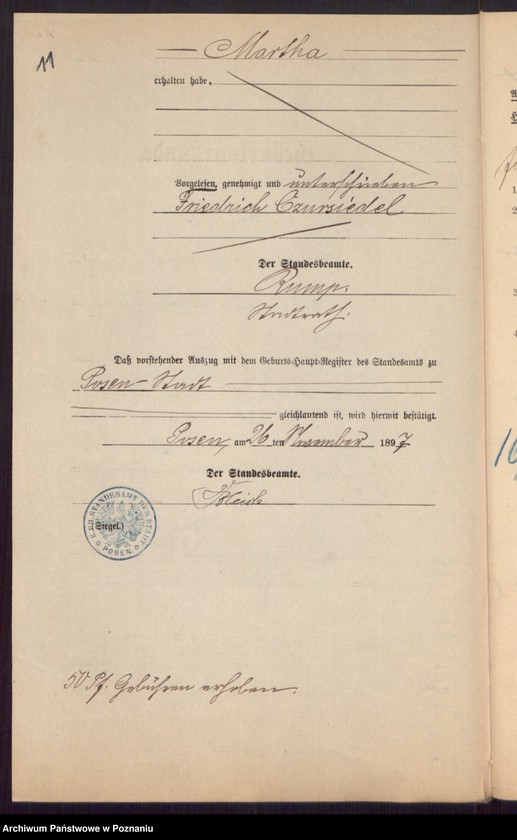 11
Martha
erhalten habe.
Vorgelesen, genehmigt und unterschrieben
Friedrich Czursiedel
Der Standesbeamte.
Rump.
Stadtrath.
Daß vorstehender Auszug mit dem Geburts-Haupt-Register des Standesamts zu
Posen-Stadt
gleichlautend ist, wird hiermit bestätigt.
Posen, am 26 ten November 1897
Der Standesbeamte.
(Siegel.)
STANDESAMT DER STADT
POSEN
50 Pf. Gebühren erhoben.
Archiwum Państwowe w Poznaniu